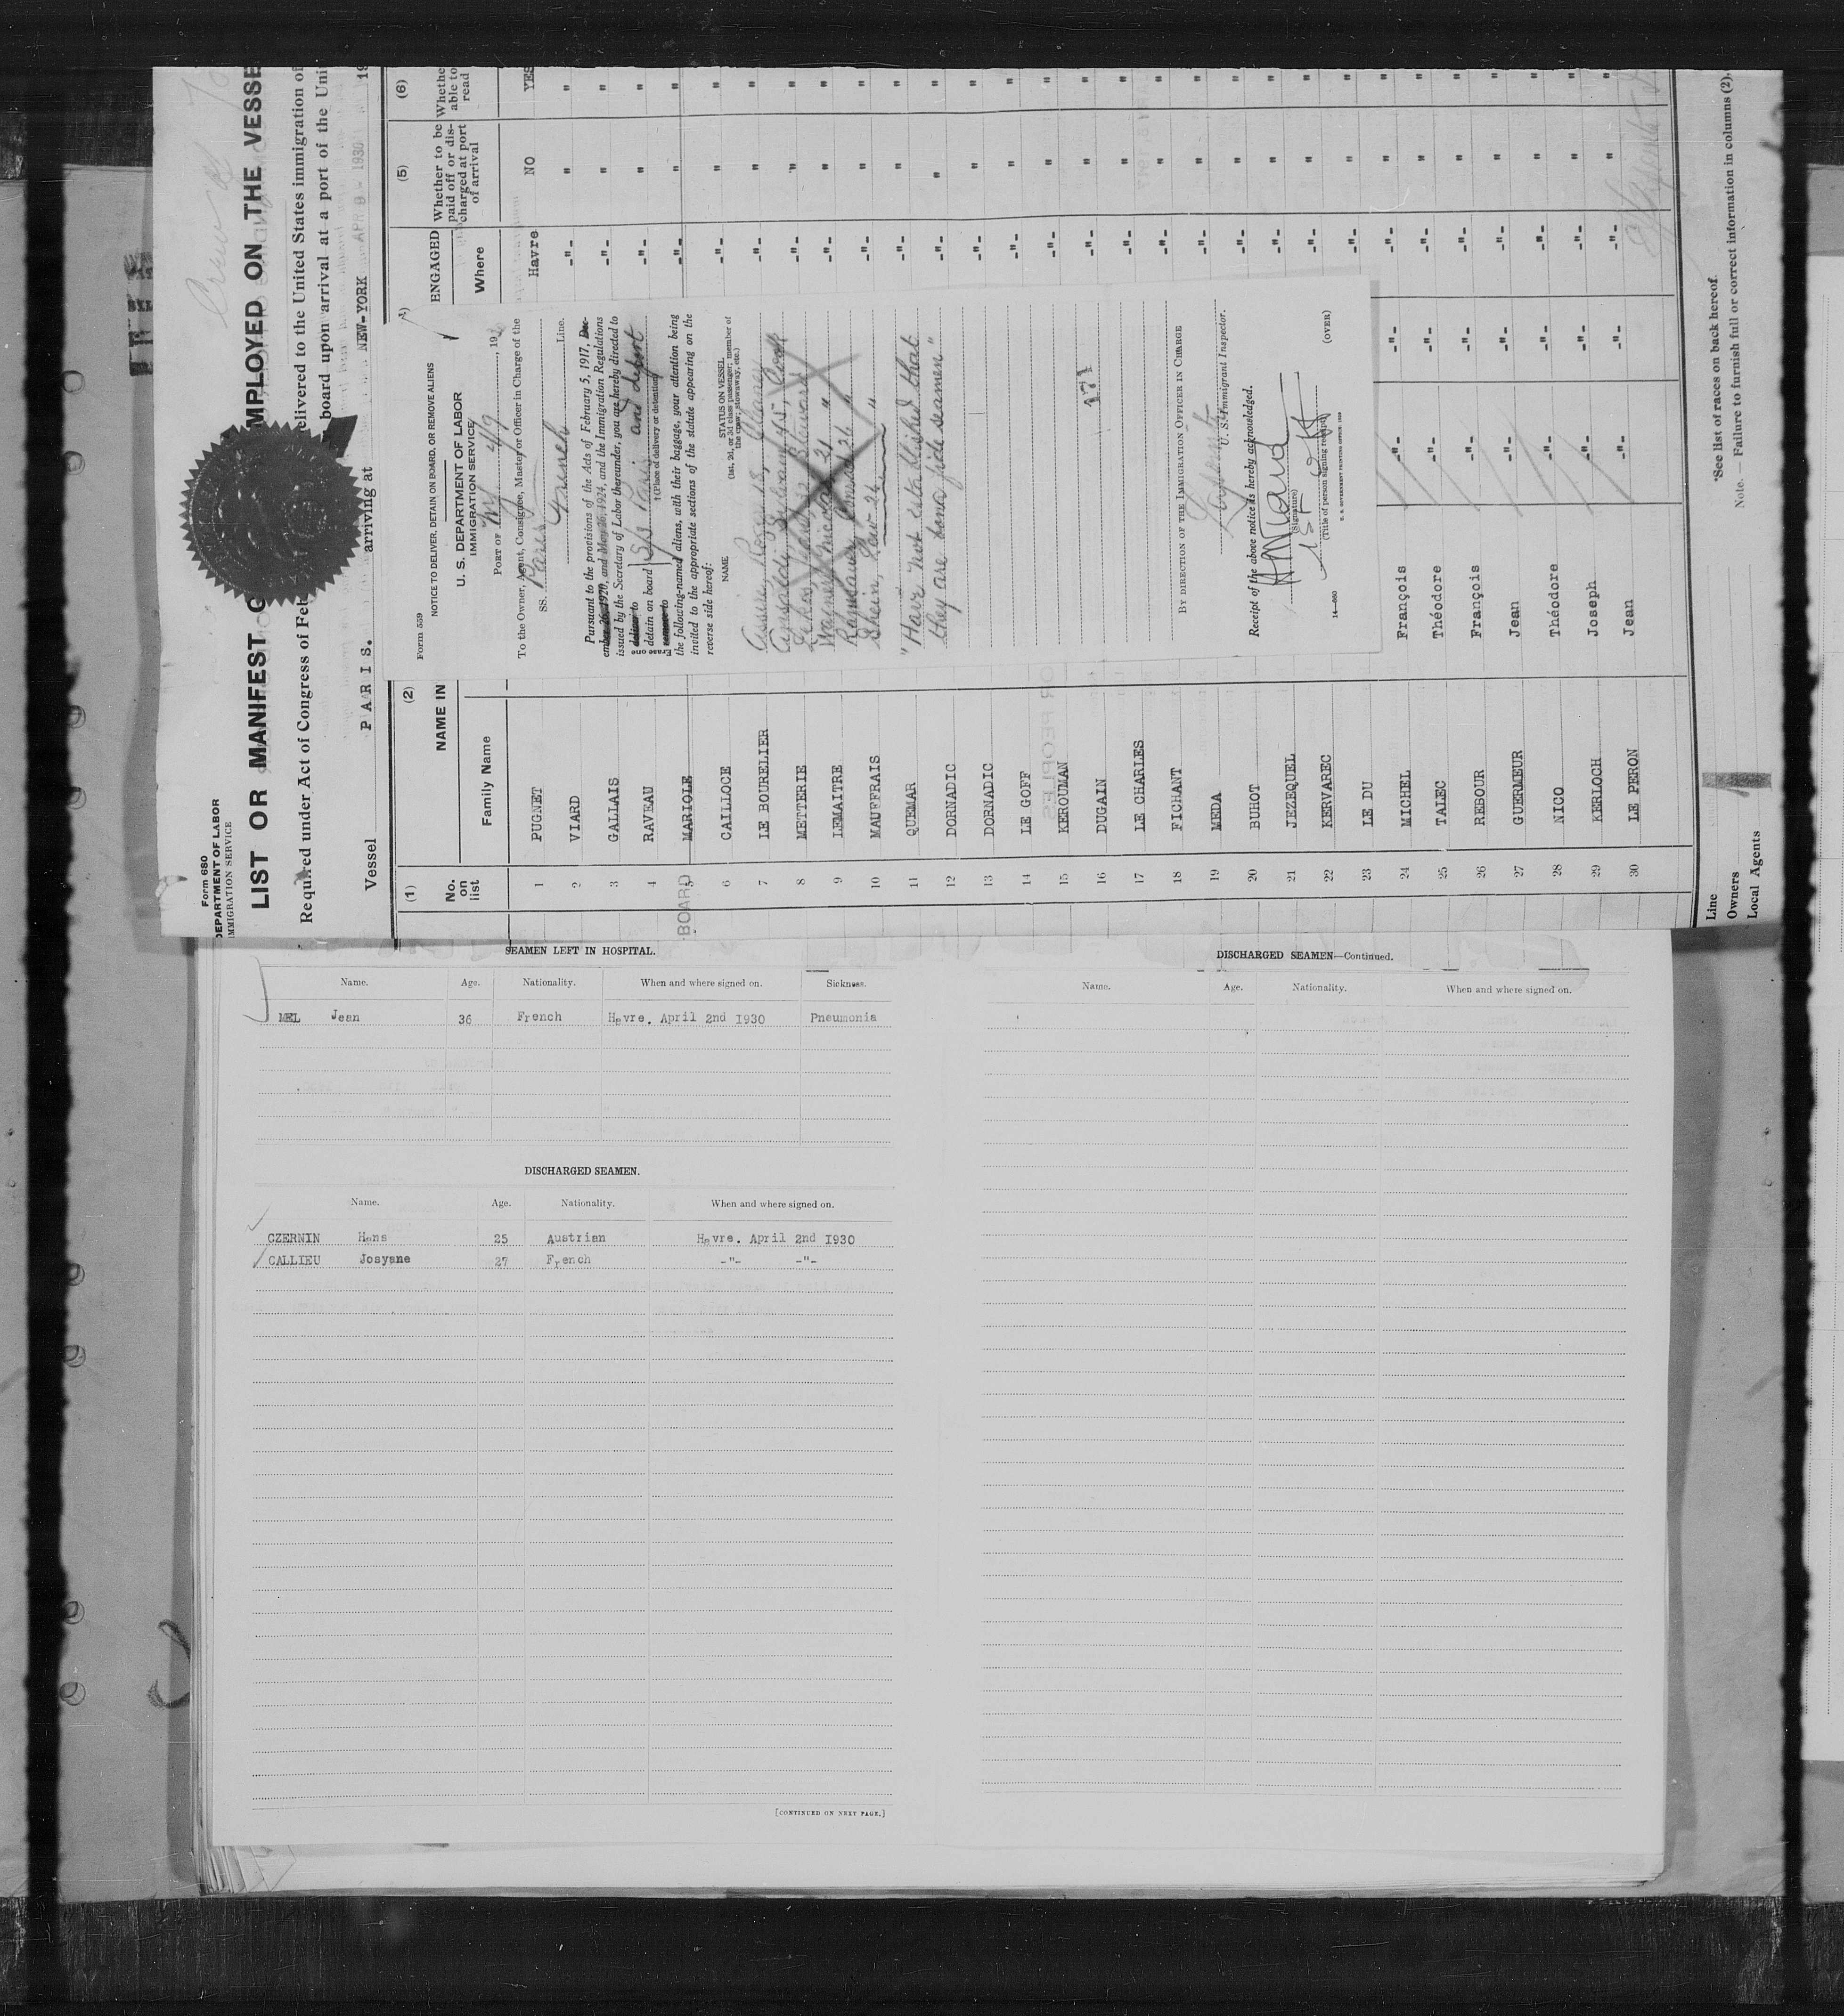 Form 680
DEPARTMENT OF LABOR
IMMIGRATION SERVICE
LIST OR MANIFEST O MPLOYED ON THE VESSE
Required under Act of Congress of Feb elivered to the United States immigration of
board upon arrival at a port of the Uni
Vessel PARIS. arriving at NEW-YORK APR 8 - 1930 19
(1) (2) (5) (6)
No. on list
NAME IN
Family Name
ENGAGED
Where
Whether to be paid off or discharged at port of arrival
Whether able to read
1 PUGNET Havre NO YES
2 VIARD -"- " "
3 GALLAIS -"- " "
4 RAVEAU -"- " "
5 MARIOLE -"- " "
6 CAILLOCE -"- " "
7 LE BOURELIER -"- " "
8 METTERIE -"- " "
9 LEMAITRE -"- " "
10 MAUFFRAIS -"- " "
11 QUEMAR -"- " "
12 DORNADIC -"- " "
13 DORNADIC -"- " "
14 LE GOFF -"- " "
15 KEROUMAN -"- " "
16 DUGAIN -"- " "
17 LE CHARLES -"- " "
18 FICHANT -"- " "
19 MEDA -"- " "
20 BUHOT -"- " "
21 JEZEQUEL -"- " "
22 KERVAREC -"- " "
23 LE DU -"- " "
24 MICHEL François -"- -"- -"- " "
25 TALEC Théodore -"- -"- -"- " "
26 REBOUR François -"- -"- -"- " "
27 GUERMEUR Jean -"- -"- -"- " "
28 NICO Théodore -"- -"- -"- " "
29 KERLOCH Joseph -"- -"- -"- " "
30 LE PERON Jean -"- -"- -"- " "
Line
Owners
Local Agents
*See list of races on back hereof.
Note.— Failure to furnish full or correct information in columns (2),
BOARD
Form 559
NOTICE TO DELIVER, DETAIN ON BOARD, OR REMOVE ALIENS
U. S. DEPARTMENT OF LABOR
IMMIGRATION SERVICE
PORT OF NY 4/9, 193
To the Owner, Agent, Consignee, Master or Officer in Charge of the
SS. Paris French Line.
Pursuant to the provisions of the Acts of February 5, 1917, Dec-
ember 26, 1920, and May 26, 1924, and the Immigration Regulations
issued by the Secretary of Labor thereunder, you are hereby directed to
deliver to
detain on board S/S Paris and deport
remove to
Erase one
†(Place of delivery or detention)
the following-named aliens, with their baggage, your attention being
invited to the appropriate sections of the statute appearing on the
reverse side hereof:
NAME
STATUS ON VESSEL
(1st, 2d, or 3d class passenger, member of the crew, stowaway, etc.)
"Have not established that
they are bona fide seamen"
171
BY DIRECTION OF THE IMMIGRATION OFFICER IN CHARGE
U. S. Immigrant Inspector.
Receipt of the above notice is hereby acknowledged.
(Signature)
1st off
(Title of person signing receipt)
14—680
U. S. GOVERNMENT PRINTING OFFICE: 1929
(OVER)
SEAMEN LEFT IN HOSPITAL.
Name. Age. Nationality. When and where signed on. Sickness.
MEL Jean 36 French Havre. April 2nd 1930 Pneumonia
DISCHARGED SEAMEN.
Name. Age. Nationality. When and where signed on.
CZERNIN Hans 25 Austrian Havre. April 2nd 1930
CALLIEU Josyane 27 French -"- -"-
[CONTINUED ON NEXT PAGE.]
DISCHARGED SEAMEN—Continued.
Name. Age. Nationality. When and where signed on.